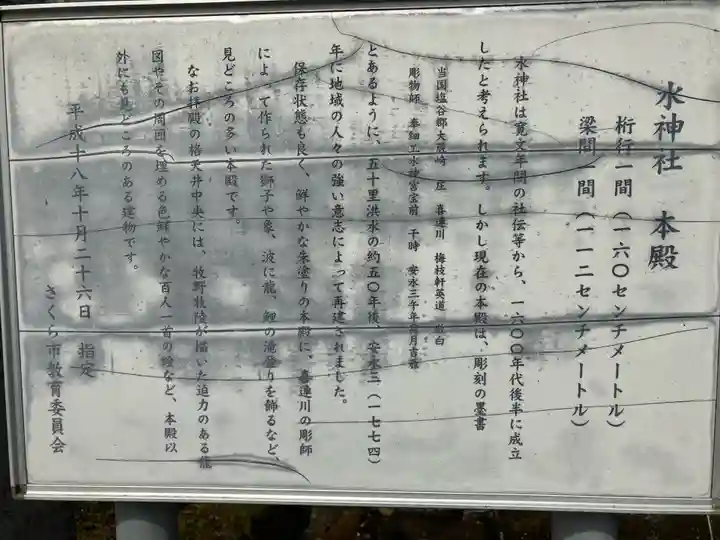 水神社 本殿
桁行一間（一六〇センチメートル）
梁間一間（一一二センチメートル）
水神社は寛文年間の社伝等から、一六〇〇年代後半に成立
したと考えられます。しかし現在の本殿は、彫刻の墨書
当国塩谷郡大 崎 庄 喜連川 梅枝軒英道 敬白
彫物師 奉細工水神宮宝前 干時 安永三午年 月吉
とあるように、五十里洪水の約五〇年後、安永三（一七七四）
年に地域の人々の強い意志によって再建されました。
保存状態も良く、鮮やかな朱塗りの本殿に、喜連川の彫師
によって作られた獅子や象、波に龍、鯉の滝登りを飾るなど、
見どころの多い本殿です。
なお拝殿の格天井中央には、牧野牧陵が描いた迫力のある龍
図やその周囲を埋める色鮮やかな百人一首の絵など、本殿以
外にも見どころのある建物です。
平成十八年十月二十六日 指定
さくら市教育委員会